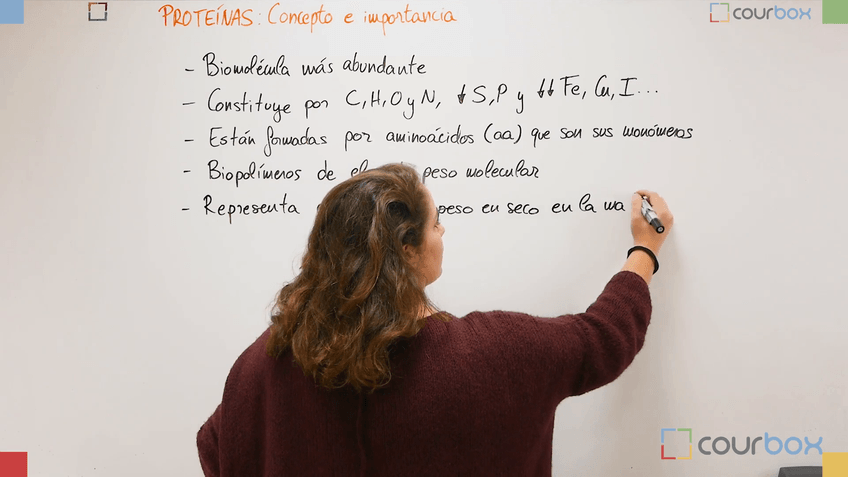 PROTEÍNAS: Concepto e importancia
courbox
- Biomolécula más abundante
- Constituye por C, H, O y N, ↓ S, P y ↓↓ Fe, Cu, I...
- Están formadas por aminoácidos (aa) que son sus monómeros
- Biopolímeros de peso molecular
- Representa peso en seco en la ma
courbox